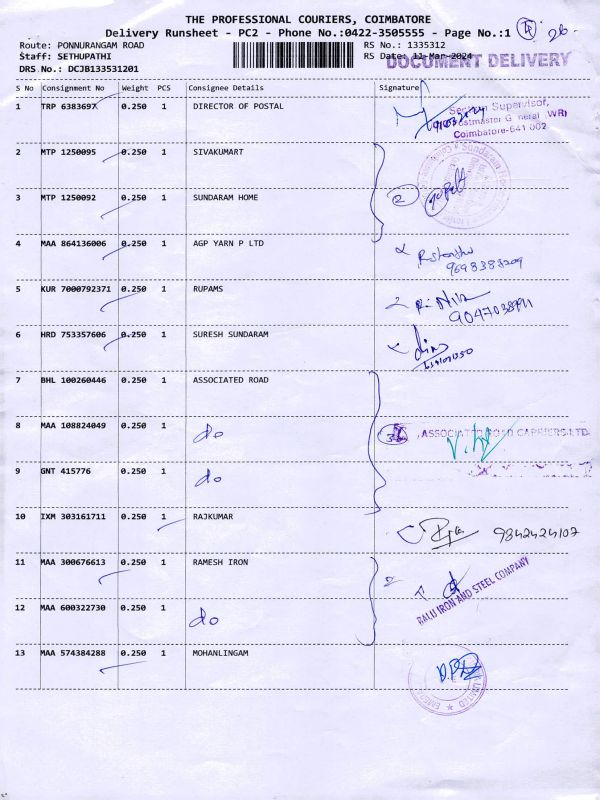 THE PROFESSIONAL COURIERS, COIMBATORE
Delivery Runsheet - PC2 - Phone No.:0422-3505555 - Page No.:1
26
Route: PONNURANGAM ROAD
RS No.: 1335312
Staff: SETHUPATHI
RS Date: 11-Mar-2024
DOCUMENT DELIVERY
DRS No.: DCJB133531201
S No Consignment No Weight PCS Consignee Details Signature
1 TRP 6383697 0.250 1 DIRECTOR OF POSTAL
Supervisor,
(WR)
Coimbatore-641 002
2 MTP 1250095 0.250 1 SIVAKUMART
3 MTP 1250092 0.250 1 SUNDARAM HOME
2
4 MAA 864136006 0.250 1 AGP YARN P LTD
5 KUR 7000792371 0.250 1 RUPAMS
6 HRD 753357606 0.250 1 SURESH SUNDARAM
7 BHL 100260446 0.250 1 ASSOCIATED ROAD
8 MAA 108824049 0.250 1 do
ASSOCIATED ROAD CARRIERS LTD.
9 GNT 415776 0.250 1 do
10 IXM 303161711 0.250 1 RAJKUMAR
9842424107
11 MAA 300676613 0.250 1 RAMESH IRON
RALU IRON AND STEEL COMPANY
12 MAA 600322730 0.250 1 do
13 MAA 574384288 0.250 1 MOHANLINGAM